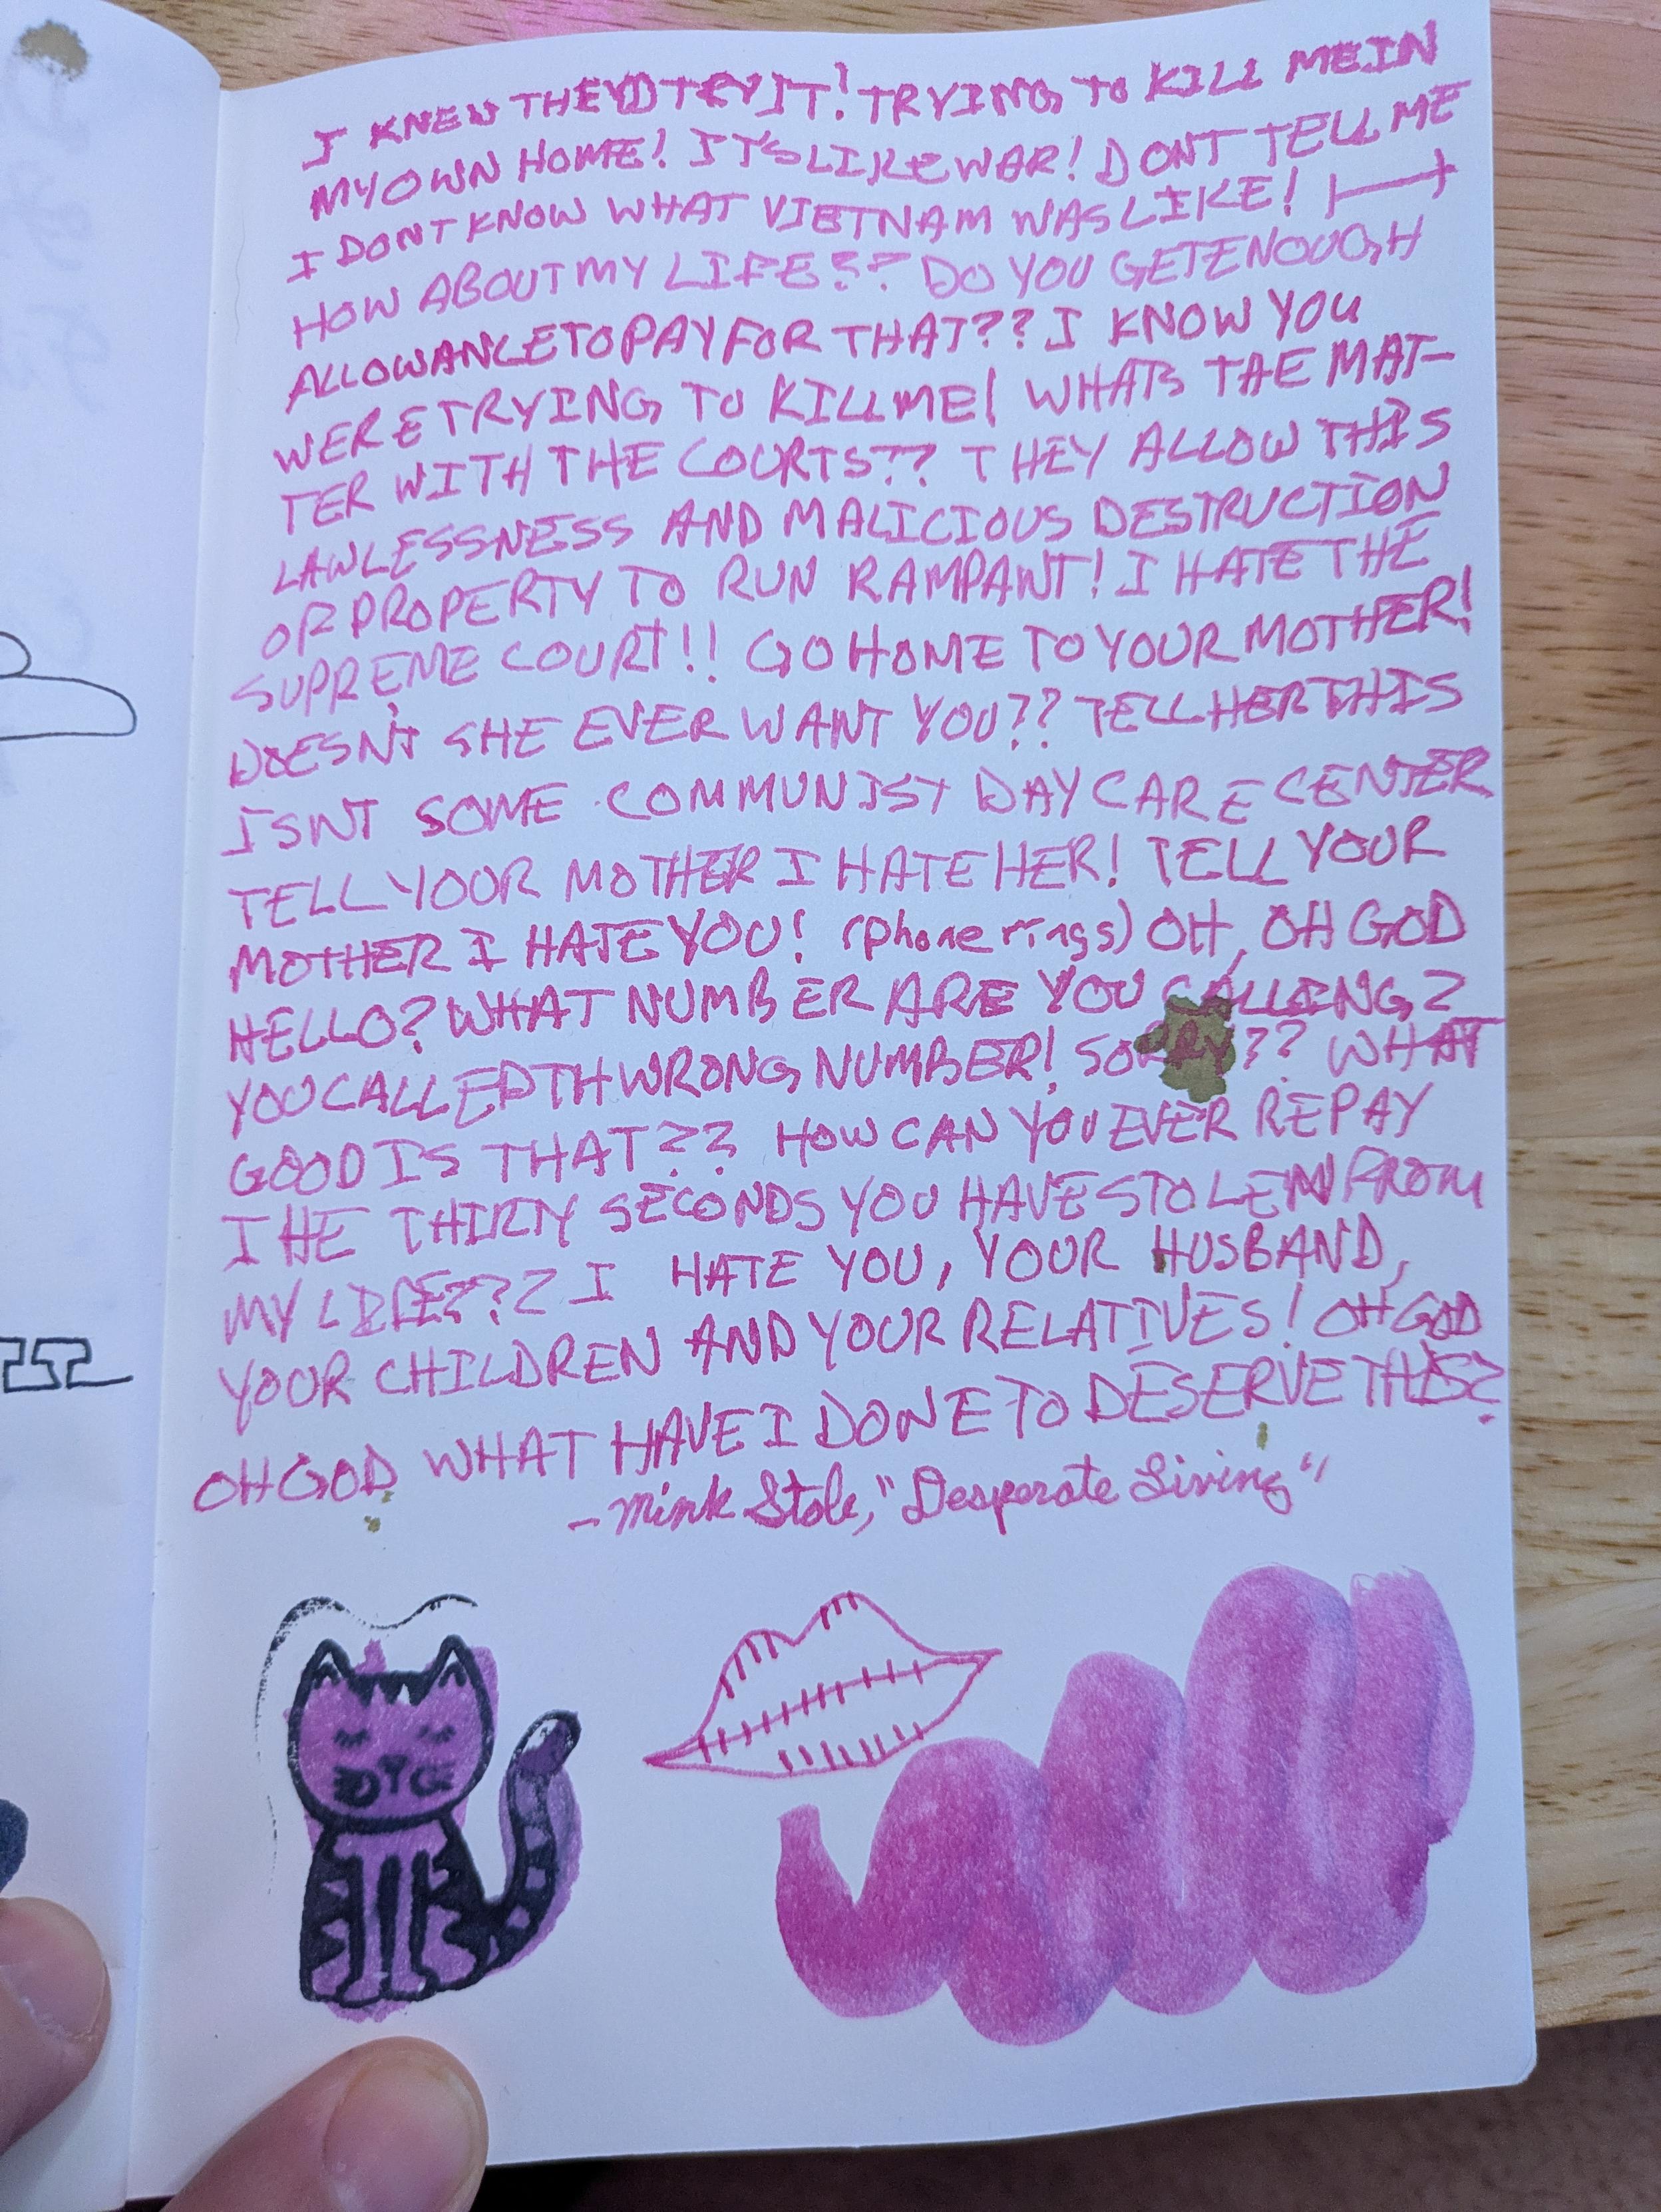 I KNEW THEYD TRY IT! TRYING TO KILL ME IN
MY OWN HOME! IT'S LIKE WAR! DONT TELL ME
I DONT KNOW WHAT VIETNAM WAS LIKE!
HOW ABOUT MY LIFE?? DO YOU GET ENOUGH
ALLOWANCE TO PAY FOR THAT?? I KNOW YOU
WERE TRYING TO KILL ME! WHATS THE MAT-
TER WITH THE COURTS?? THEY ALLOW THIS
LAWLESSNESS AND MALICIOUS DESTRUCTION
OF PROPERTY TO RUN RAMPANT! I HATE THE
SUPREME COURT!! GO HOME TO YOUR MOTHER!
DOESN'T SHE EVER WANT YOU?? TELL HER THIS
ISNT SOME COMMUNIST DAY CARE CENTER
TELL YOUR MOTHER I HATE HER! TELL YOUR
MOTHER I HATE YOU! (phone rings) OH, OH GOD
HELLO? WHAT NUMBER ARE YOU CALLING?
YOU CALLED TH WRONG NUMBER! SORRY?? WHAT
GOOD IS THAT?? HOW CAN YOU EVER REPAY
THE THIRTY SECONDS YOU HAVE STOLEN FROM
MY LIFE??? I HATE YOU, YOUR HUSBAND,
YOUR CHILDREN AND YOUR RELATIVES! OH GOD
OH GOD WHAT HAVE I DONE TO DESERVE THIS?
- Mink Stole, "Desperate Living"